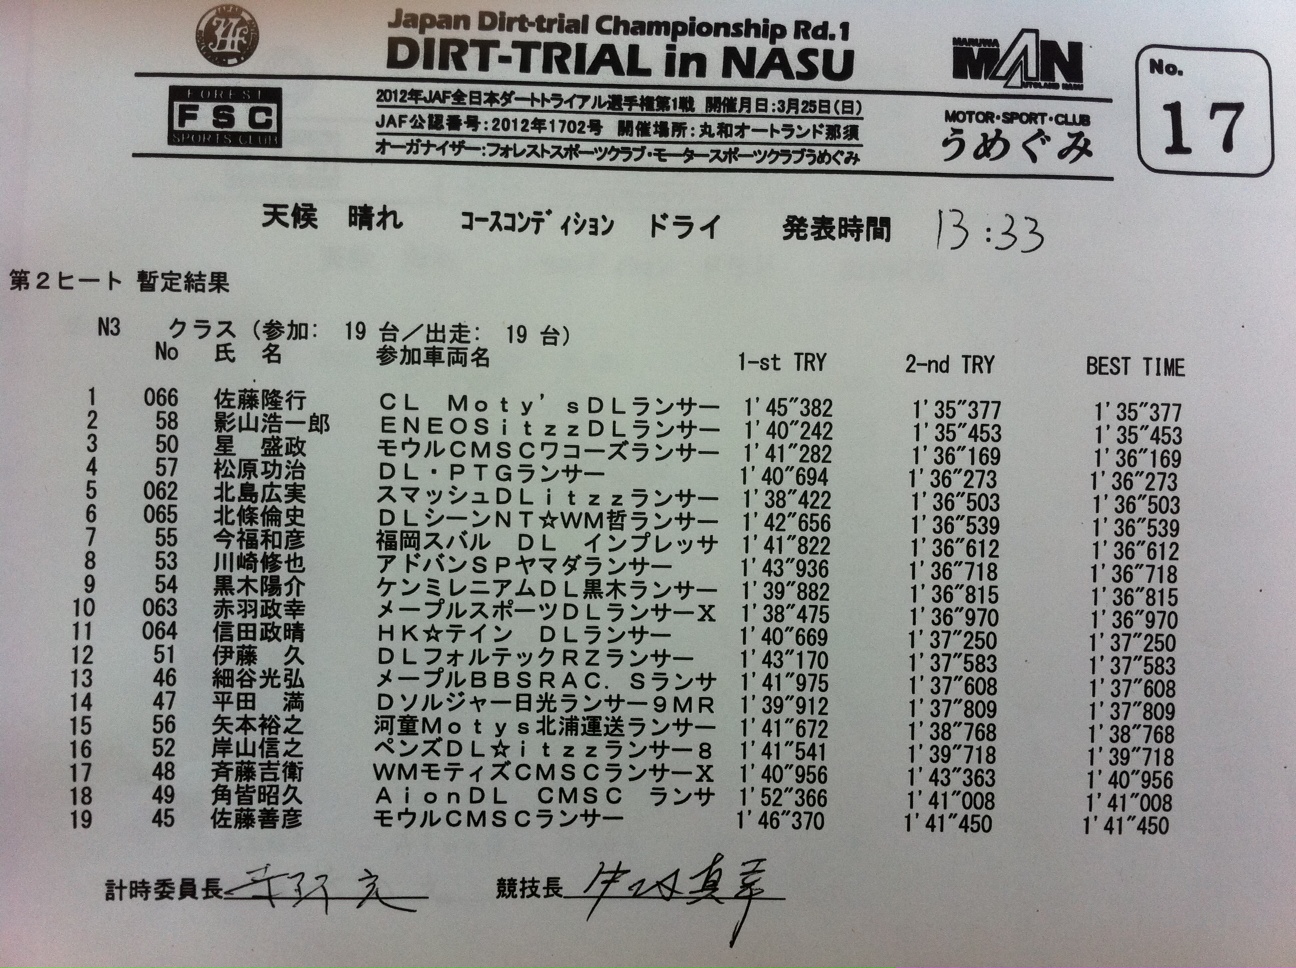 Japan Dirt-trial Championship Rd.1
DIRT-TRIAL in NASU
JAF
FOREST
FSC
SPORTS CLUB
2012年JAF全日本ダートトライアル選手権第1戦 開催月日:3月25日(日)
JAF公認番号:2012年1702号 開催場所:丸和オートランド那須
オーガナイザー:フォレストスポーツクラブ・モータースポーツクラブうめぐみ
MARUWA
MAN
AUTOLAND NASU
MOTOR・SPORT・CLUB
うめぐみ
No.
17
天候 晴れ コースコンディション ドライ 発表時間 13:33
第2ヒート 暫定結果
N3 クラス (参加: 19 台/出走: 19 台)
No 氏 名 参加車両名 1-st TRY 2-nd TRY BEST TIME
1 066 佐藤隆行 CL Moty'sDLランサー 1'45"382 1'35"377 1'35"377
2 58 影山浩一郎 ENEOSitzzDLランサー 1'40"242 1'35"453 1'35"453
3 50 星 盛政 モウルCMSCワコーズランサー 1'41"282 1'36"169 1'36"169
4 57 松原功治 DL・PTGランサー 1'40"694 1'36"273 1'36"273
5 062 北島広実 スマッシュDLitzzランサー 1'38"422 1'36"503 1'36"503
6 065 北條倫史 DLシーンNT☆WM哲ランサー 1'42"656 1'36"539 1'36"539
7 55 今福和彦 福岡スバル DL インプレッサ 1'41"822 1'36"612 1'36"612
8 53 川崎修也 アドバンSPヤマダランサー 1'43"936 1'36"718 1'36"718
9 54 黒木陽介 ケンミレニアムDL黒木ランサー 1'39"882 1'36"815 1'36"815
10 063 赤羽政幸 メープルスポーツDLランサーX 1'38"475 1'36"970 1'36"970
11 064 信田政晴 HK☆テイン DLランサー 1'40"669 1'37"250 1'37"250
12 51 伊藤 久 DLフォルテックRZランサー 1'43"170 1'37"583 1'37"583
13 46 細谷光弘 メープルBBSRAC.Sランサ 1'41"975 1'37"608 1'37"608
14 47 平田 満 Dソルジャー日光ランサー9MR 1'39"912 1'37"809 1'37"809
15 56 矢本裕之 河童Motys北浦運送ランサー 1'41"672 1'38"768 1'38"768
16 52 岸山信之 ペンズDL☆itzzランサー8 1'41"541 1'39"718 1'39"718
17 48 斉藤吉衛 WMモティズCMSCランサーX 1'40"956 1'43"363 1'40"956
18 49 角皆昭久 AionDL CMSC ランサ 1'52"366 1'41"008 1'41"008
19 45 佐藤善彦 モウルCMSCランサー 1'46"370 1'41"450 1'41"450
計時委員長 競技長